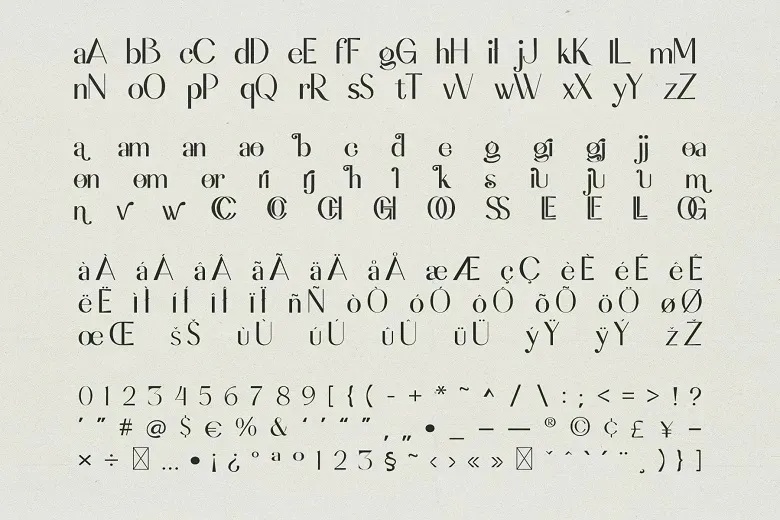 aA bB cC dD eE fF gG hH iI jJ kK lL mM
nN oO pP qQ rR sS tT vV wW xX yY zZ
a am an ao b c d e g gi gj jj oa
on om or ri rj h l k s iu ju u m
n v w CC CO CH GH OO SS LE E LL OG
àÀ áÁ âÂ ãÃ äÄ åÅ æÆ çÇ èÈ éÉ êÊ
ëË ìÌ íÍ îÎ ïÏ ñÑ òÒ óÓ ôÔ õÕ öÖ øØ
œŒ šŠ ùÙ úÚ ûÛ üÜ ýÝ ÿŸ žŽ
0 1 2 3 4 5 6 7 8 9 [ { ( - + * ~ ^ / \ : ; < = > ! ?
' " # @ $ € % & ‘ ’ “ ” ‚ „ • _ – — ® © ¢ £ ¥ −
× ÷ … • ¡ ¿ º ª º 1 2 3 § ~ ‹ › « » ˇ ˆ ` ´ ¨ ¸ ) } ]